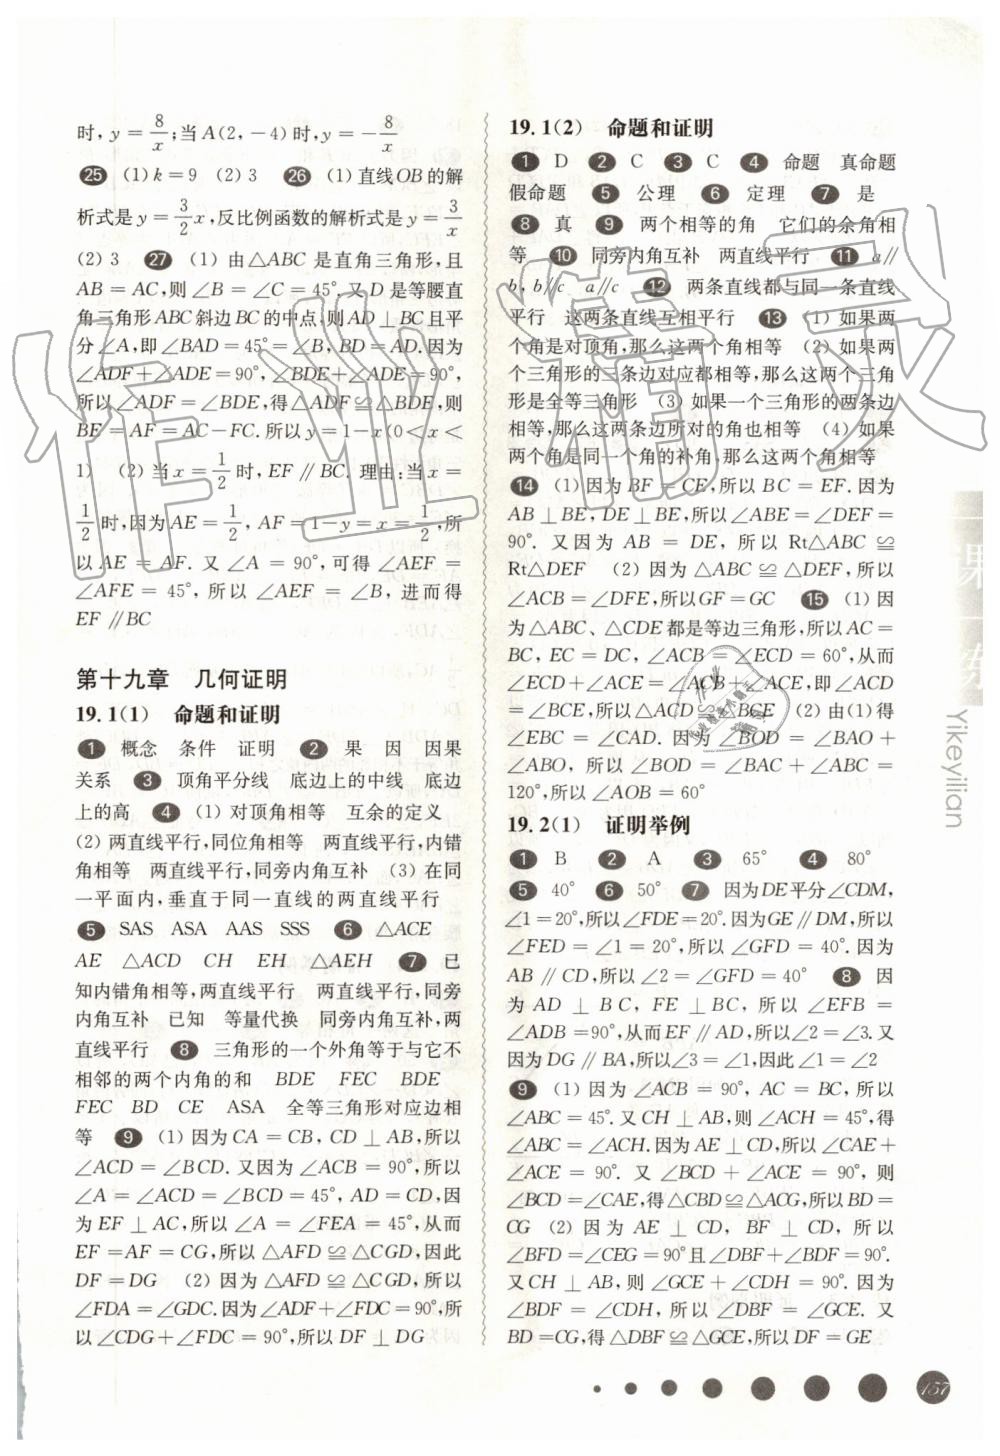 时,y=8/x;当A(2,-4)时,y=-8/x
25 (1)k=9 (2)3 26 (1)直线OB的解
析式是y=3/2x,反比例函数的解析式是y=3/x
(2)3 27 (1)由△ABC是直角三角形,且
AB=AC,则∠B=∠C=45°.又D是等腰直
角三角形ABC斜边BC的中点,则AD⊥BC且平
分∠A,即∠BAD=45°=∠B,BD=AD.因为
∠ADF+∠ADE=90°,∠BDE+∠ADE=90°,
所以∠ADF=∠BDE,得△ADF≌△BDE,则
BE=AF=AC-FC.所以y=1-x(0<x<
1) (2)当x=1/2时,EF∥BC.理由:当x=
1/2时,因为AE=1/2,AF=1-y=x=1/2,所
以AE=AF.又∠A=90°,可得∠AEF=
∠AFE=45°,所以∠AEF=∠B,进而得
EF∥BC
第十九章 几何证明
19.1(1) 命题和证明
1 概念 条件 证明 2 果 因 因果
关系 3 顶角平分线 底边上的中线 底边
上的高 4 (1)对顶角相等 互余的定义
(2)两直线平行,同位角相等 两直线平行,内错
角相等 两直线平行,同旁内角互补 (3)在同
一平面内,垂直于同一直线的两直线平行
5 SAS ASA AAS SSS 6 △ACE
AE △ACD CH EH △AEH 7 已
知内错角相等,两直线平行 两直线平行,同旁
内角互补 已知 等量代换 同旁内角互补,两
直线平行 8 三角形的一个外角等于与它不
相邻的两个内角的和 BDE FEC BDE
FEC BD CE ASA 全等三角形对应边相
等 9 (1)因为CA=CB,CD⊥AB,所以
∠ACD=∠BCD.又因为∠ACB=90°,所以
∠A=∠ACD=∠BCD=45°,AD=CD,因
为EF⊥AC,所以∠A=∠FEA=45°,从而
EF=AF=CG,所以△AFD≌△CGD,因此
DF=DG (2)因为△AFD≌△CGD,所以
∠FDA=∠GDC.因为∠ADF+∠FDC=90°,所
以∠CDG+∠FDC=90°,所以DF⊥DG
19.1(2) 命题和证明
1 D 2 C 3 C 4 命题 真命题
假命题 5 公理 6 定理 7 是
8 真 9 两个相等的角 它们的余角相
等 10 同旁内角互补 两直线平行 11 a∥
b,b∥c a∥c 12 两条直线都与同一条直线
平行 这两条直线互相平行 13 (1)如果两
个角是对顶角,那么这两个角相等 (2)如果两
个三角形的三条边对应都相等,那么这两个三角
形是全等三角形 (3)如果一个三角形的两条边
相等,那么这两条边所对的角也相等 (4)如果
两个角是同一个角的补角,那么这两个角相等
14 (1)因为BF=CE,所以BC=EF.因为
AB⊥BE,DE⊥BE,所以∠ABE=∠DEF=
90°.又因为AB=DE,所以Rt△ABC≌
Rt△DEF (2)因为△ABC≌△DEF,所以
∠ACB=∠DFE,所以GF=GC 15 (1)因
为△ABC、△CDE都是等边三角形,所以AC=
BC,EC=DC,∠ACB=∠ECD=60°,从而
∠ECD+∠ACE=∠ACB+∠ACE,即∠ACD
=∠BCE,所以△ACD≌△BCE (2)由(1)得
∠EBC=∠CAD.因为∠BOD=∠BAO+
∠ABO,所以∠BOD=∠BAC+∠ABC=
120°,所以∠AOB=60°
19.2(1) 证明举例
1 B 2 A 3 65° 4 80°
5 40° 6 50° 7 因为DE平分∠CDM,
∠1=20°,所以∠FDE=20°.因为GE∥DM,所以
∠FED=∠1=20°,所以∠GFD=40°.因为
AB∥CD,所以∠2=∠GFD=40° 8 因
为AD⊥BC,FE⊥BC,所以∠EFB=
∠ADB=90°,从而EF∥AD,所以∠2=∠3.又
因为DG∥BA,所以∠3=∠1,因此∠1=∠2
9 (1)因为∠ACB=90°,AC=BC,所以
∠ABC=45°.又CH⊥AB,则∠ACH=45°,得
∠ABC=∠ACH.因为AE⊥CD,所以∠CAE+
∠ACE=90°.又∠BCD+∠ACE=90°,则
∠BCD=∠CAE,得△CBD≌△ACG,所以BD=
CG (2)因为AE⊥CD,BF⊥CD,所以
∠BFD=∠CEG=90°且∠DBF+∠BDF=90°.
又CH⊥AB,则∠GCE+∠CDH=90°.因为
∠BDF=∠CDH,所以∠DBF=∠GCE.又
BD=CG,得△DBF≌△GCE,所以DF=GE
课
练
Yikeyilian
157
作业精灵